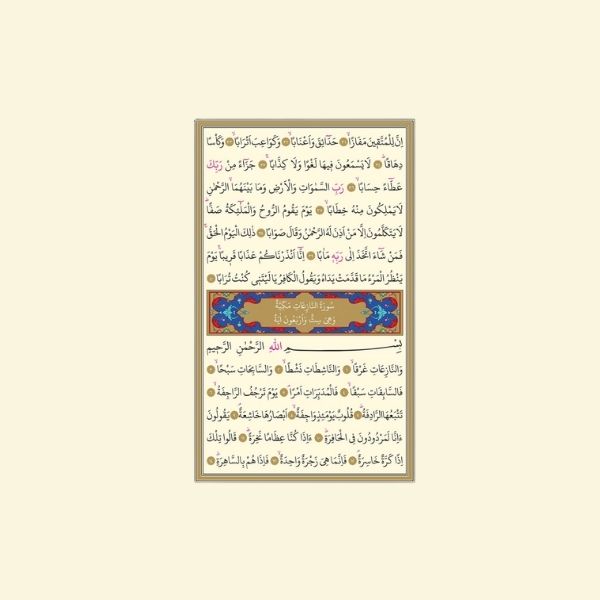 اِنَّ لِلْمُتَّقٖينَ مَفَازًاۙ ﴿٣١﴾ حَدَٓائِقَ وَاَعْنَابًاۙ ﴿٣٢﴾ وَكَوَاعِبَ اَتْرَابًاۙ ﴿٣٣﴾ وَكَأْسًا
دِهَاقًاۜ ﴿٣٤﴾ لَا يَسْمَعُونَ فٖيهَا لَغْوًا وَلَا كِذَّابًاۚ ﴿٣٥﴾ جَزَٓاءً مِنْ رَبِّكَ
عَطَٓاءً حِسَابًاۙ ﴿٣٦﴾ رَبِّ السَّمٰوَاتِ وَالْاَرْضِ وَمَا بَيْنَهُمَا الرَّحْمٰنِ
لَا يَمْلِكُونَ مِنْهُ خِطَابًاۚ ﴿٣٧﴾ يَوْمَ يَقُومُ الرُّوحُ وَالْمَلٰٓئِكَةُ صَفًّاۜ
لَا يَتَكَلَّمُونَ اِلَّا مَنْ اَذِنَ لَهُ الرَّحْمٰنُ وَقَالَ صَوَابًا ﴿٣٨﴾ ذٰلِكَ الْيَوْمُ الْحَقُّۚ
فَمَنْ شَٓاءَ اتَّخَذَ اِلٰى رَبِّهٖ مَاٰبًا ﴿٣٩﴾ اِنَّٓا اَنْذَرْنَاكُمْ عَذَابًا قَرٖيبًاۚ يَوْمَ
يَنْظُرُ الْمَرْءُ مَا قَدَّمَتْ يَدَاهُ وَيَقُولُ الْكَافِرُ يَا لَيْتَنٖي كُنْتُ تُرَابًا ﴿٤٠﴾
سُورَةُ النَّازِعَاتِ مَكِّيَّةٌ
وَهِيَ سِتٌّ وَاَرْبَعُونَ اٰيَةً
بِسْمِ اللّٰهِ الرَّحْمٰنِ الرَّحٖيمِ
وَالنَّازِعَاتِ غَرْقًاۙ ﴿١﴾ وَالنَّاشِطَاتِ نَشْطًاۙ ﴿٢﴾ وَالسَّابِحَاتِ سَبْحًاۙ ﴿٣﴾
فَالسَّابِقَاتِ سَبْقًاۙ ﴿٤﴾ فَالْمُدَبِّرَاتِ اَمْرًاۢ ﴿٥﴾ يَوْمَ تَرْجُفُ الرَّاجِفَةُۙ ﴿٦﴾
تَتْبَعُهَا الرَّادِفَةُۜ ﴿٧﴾ قُلُوبٌ يَوْمَئِذٍ وَاجِفَةٌۙ ﴿٨﴾ اَبْصَارُهَا خَاشِعَةٌۢ ﴿٩﴾ يَقُولُونَ
ءَاِنَّا لَمَرْدُودُونَ فِي الْحَافِرَةِۜ ﴿١٠﴾ ءَاِذَا كُنَّا عِظَامًا نَخِرَةًۜ ﴿١١﴾ قَالُوا تِلْكَ
اِذًا كَرَّةٌ خَاسِرَةٌۢ ﴿١٢﴾ فَاِنَّمَا هِيَ زَجْرَةٌ وَاحِدَةٌۙ ﴿١٣﴾ فَاِذَا هُمْ بِالسَّاهِرَةِۜ ﴿١٤﴾